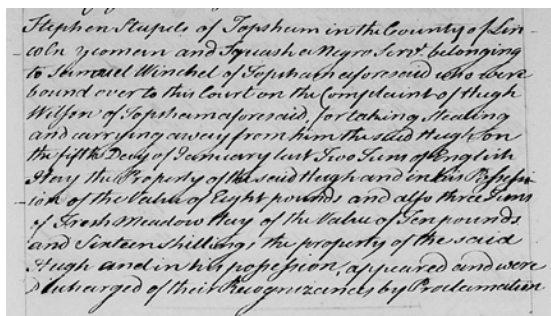 Stephen Staples of Topsham in the County of Lin
coln yeomein and Squash a Negro Servt. belonging
to Samuel Winchel of Topsham aforesaid who were
bound over to this Court on the Complaint of Hugh
Wilson of Topsham aforesaid, for taking stealing
and carrying away from him the said Hugh on
the fifth Day of January last Two Tuns of English
Hay the Property of the said Hugh and in his Possessi-
ion of the Value of Eight pounds and also three Tuns
of Fresh Meadow Hay of the Value of Ten pounds
and Sixteen shillings the property of the said
Hugh and in his possession, appeared and were
discharged of their Recognizances by Proclamation